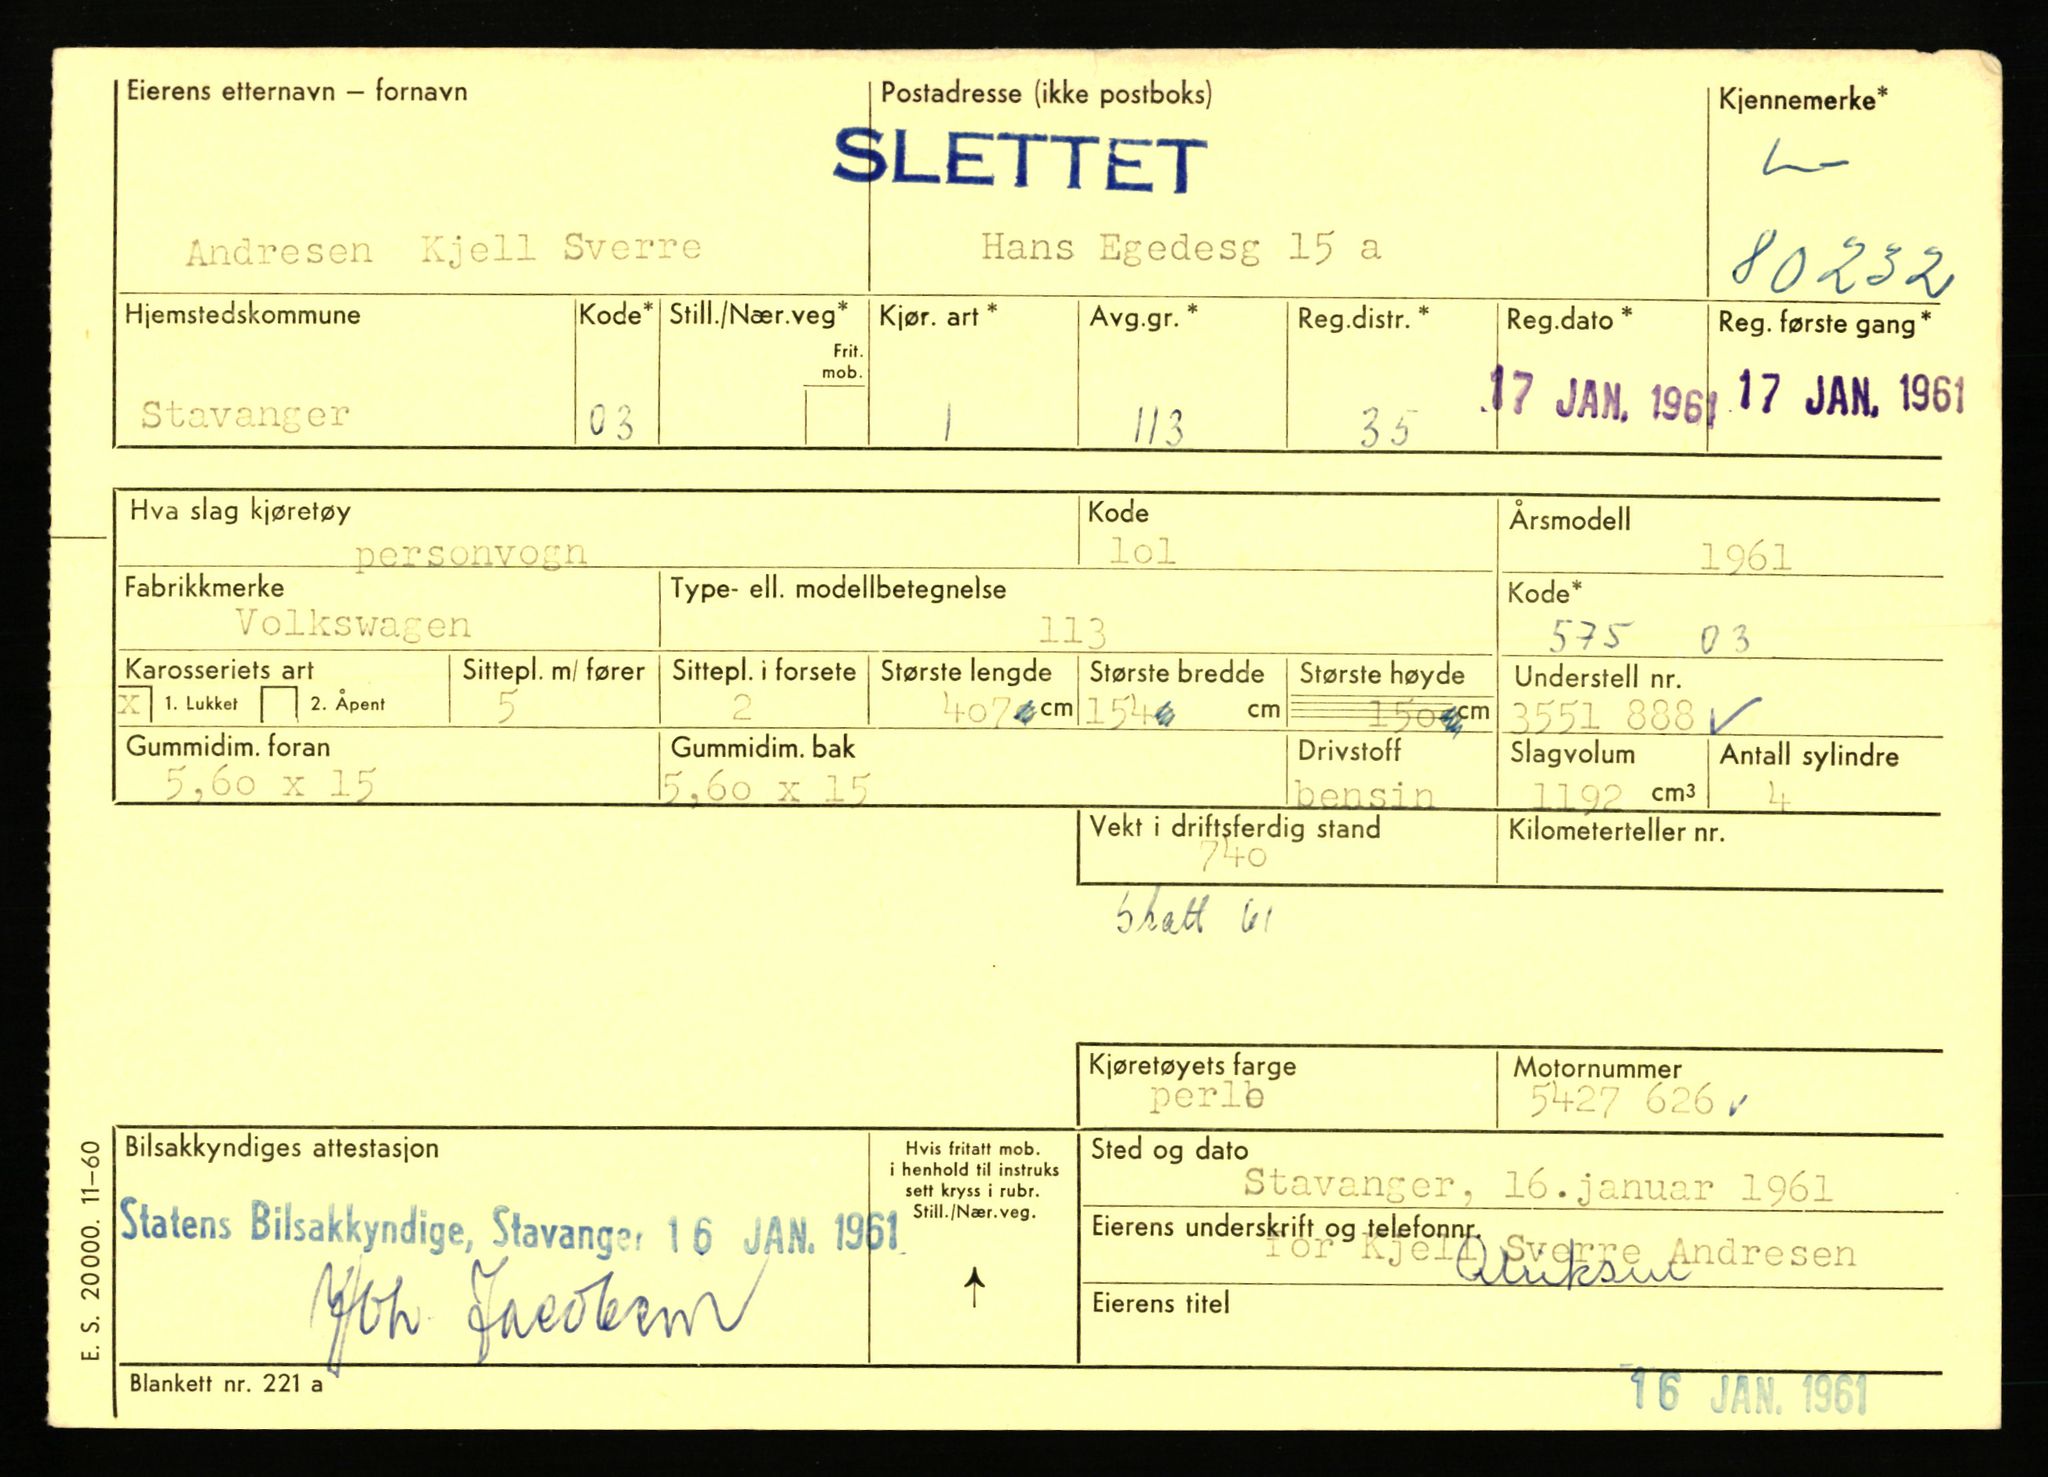 Eierens etternavn – fornavn
Postadresse (ikke postboks)
Kjennemerke*
SLETTET
L-
Andresen Kjell Sverre
Hans Egedesg 15 a
80232
Hjemstedskommune
Kode*
Still./Nær.veg*
Frit. mob.
Kjør. art *
Avg.gr. *
Reg.distr. *
Reg.dato *
Reg. første gang*
Stavanger
03
1
113
35
17 JAN. 1961
17 JAN. 1961
Hva slag kjøretøy
Kode
Årsmodell
personvogn
lol
1961
Fabrikkmerke
Type- ell. modellbetegnelse
Kode*
Volkswagen
113
575 03
Karosseriets art
Sittepl. m/ fører
Sittepl. i forsete
Største lengde
Største bredde
Største høyde
Understell nr.
x 1. Lukket 2. Åpent
5
2
407 cm
154 cm
150 cm
3551 888 ✓
Gummidim. foran
Gummidim. bak
Drivstoff
Slagvolum
Antall sylindre
5,60 x 15
5,60 x 15
bensin
1192 cm³
4
Vekt i driftsferdig stand
Kilometerteller nr.
740
Skatt 61
Kjøretøyets farge
Motornummer
5427 626 ✓
Bilsakkyndiges attestasjon
Hvis fritatt mob.
i henhold til instruks
sett kryss i rubr.
Still./Nær.veg.
↑
Sted og dato
Stavanger, 16.januar 1961
Statens Bilsakkyndige, Stavanger 16 JAN. 1961
Joh Jacobsen
Eierens underskrift og telefonnr.
for Kjell Sverre Andresen
Eierens titel
E. S. 20000. 11–60
Blankett nr. 221 a
16 JAN. 1961